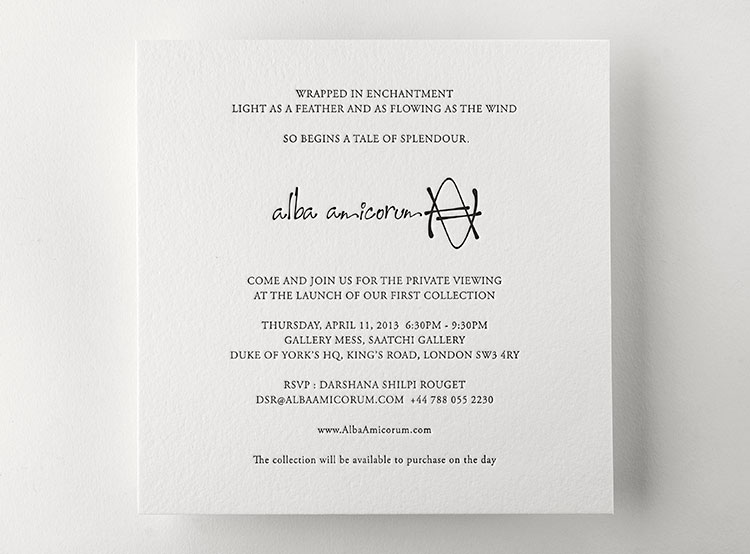 WRAPPED IN ENCHANTMENT
LIGHT AS A FEATHER AND AS FLOWING AS THE WIND
SO BEGINS A TALE OF SPLENDOUR.
alba amicorum
COME AND JOIN US FOR THE PRIVATE VIEWING
AT THE LAUNCH OF OUR FIRST COLLECTION
THURSDAY, APRIL 11, 2013 6:30PM - 9:30PM
GALLERY MESS, SAATCHI GALLERY
DUKE OF YORK'S HQ, KING'S ROAD, LONDON SW3 4RY
RSVP : DARSHANA SHILPI ROUGET
DSR@ALBAAMICORUM.COM +44 788 055 2230
www.AlbaAmicorum.com
The collection will be available to purchase on the day